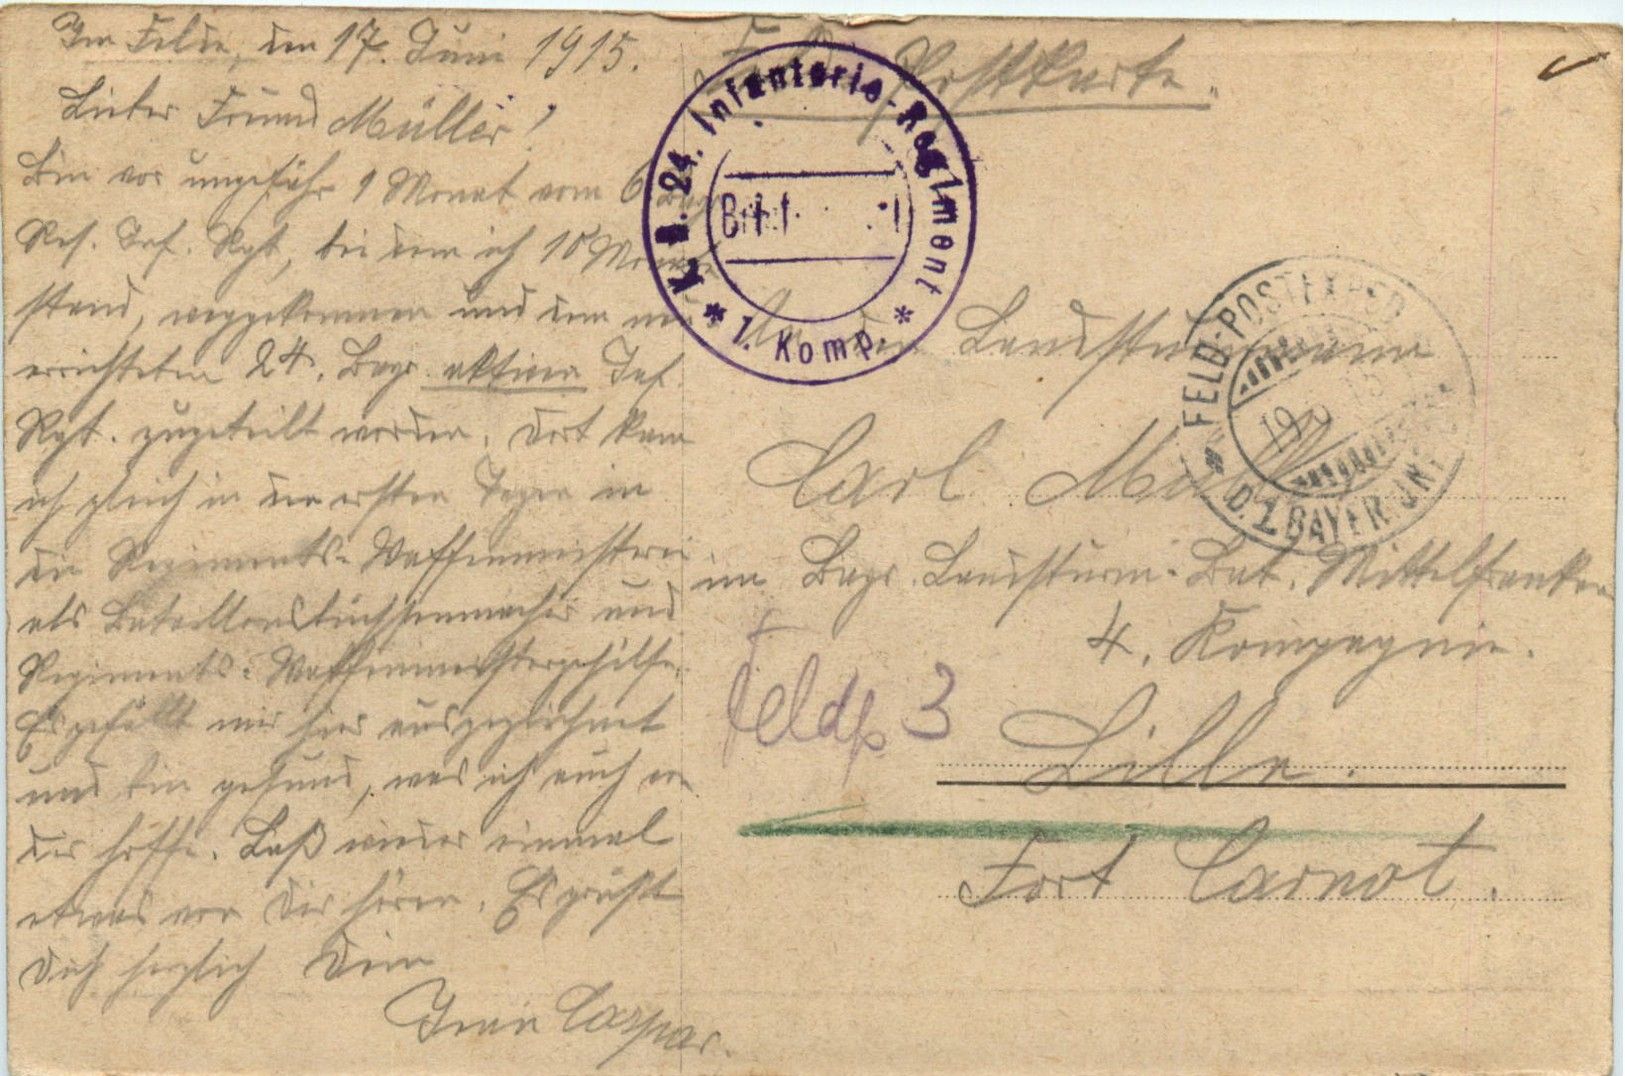 Im Felde, den 17. Juni 1915.
Lieber Freund Müller!
Bin vor ungefähr 1 Monat vom 6 Bayr.
Res. Inf. Rgt, bei dem ich 10 Monate
stand, weggekommen und dem neu
errichteten 24. Bayr. aktiven Inf.
Rgt. zugeteilt worden. Dort kam
ich gleich in den ersten Tagen in
die Regiments-Waffenmeisterei
als Bataillonsbüchsenmacher und
Regiments-Waffenmeistergehilfe.
Es gefällt mir hier ausgezeichnet
und bin gesund, was ich auch von
der hoffe. Laß wieder einmal
etwas von Dir hören. Es grüßt
Dich herzlich Dein
Jean Caspar.
Feldpostkarte.
K. B. 24. Infanterie-Regiment
* 1. Komp. *
An den Landsturmmann
Carl Müller
im Bayr. Landsturm-Bat. Mittelfranken
4. Kompagnie.
Feldp 3
Lille.
Fort Carnot.
FELD-POSTEXPED.
D. 1. BAYER. INF.